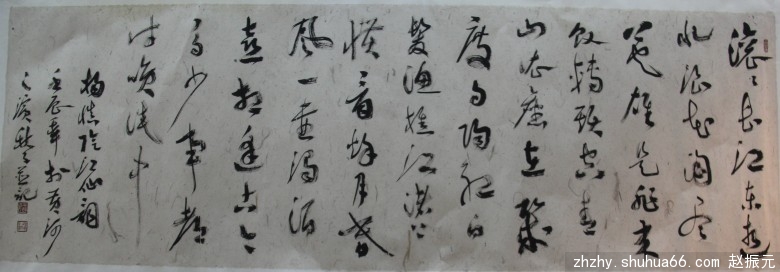 滚滚长江东逝
水浪花淘尽
英雄是非成
败转头空青
山依旧在几
度夕阳红白
发渔樵江渚上
惯看秋月春
风一壶浊酒
喜相逢古今
多少事都
付笑谈中
杨慎临江仙词
壬辰年于黄河
之滨
zhzhy.shuhua66.com 赵振元